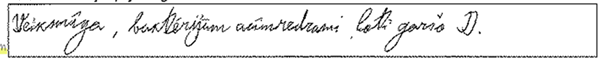 Veiksmīga, baktērijām acīmredzami ļoti garšo D.